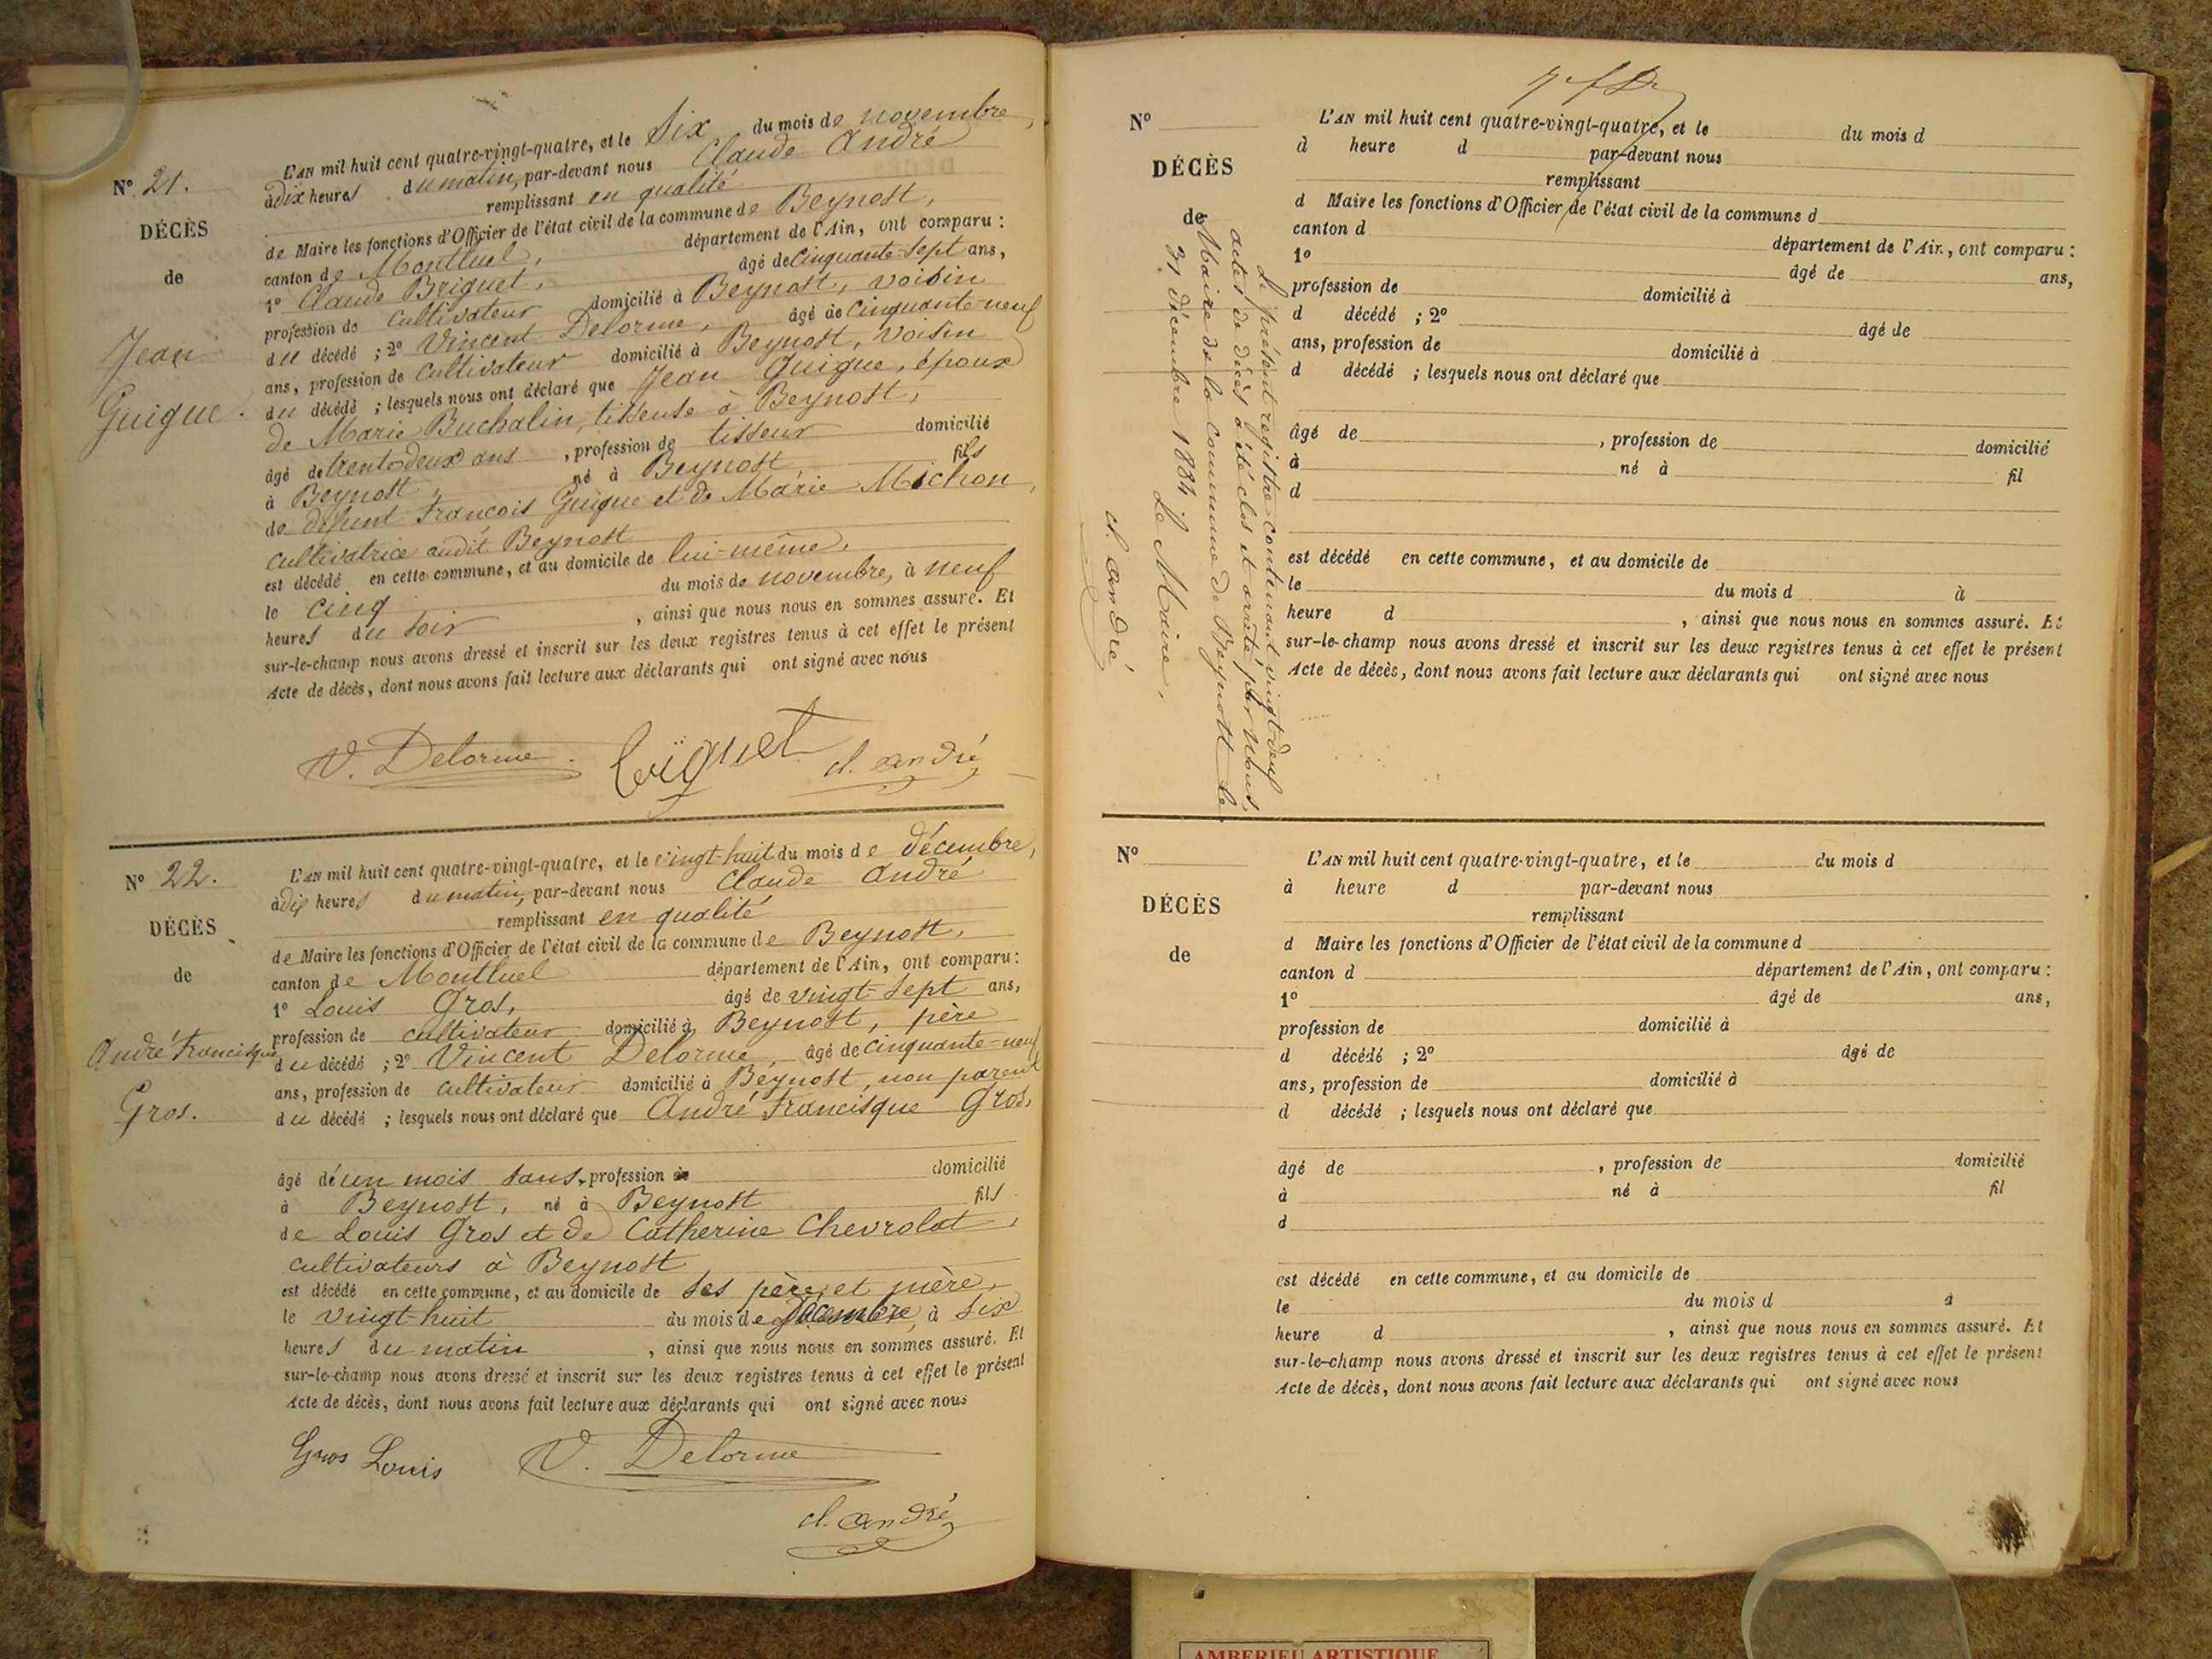 N° 21.
DÉCÈS
de
Jean
Guigue.
L'AN mil huit cent quatre-vingt-quatre, et le Six du mois de novembre,
à dix heures du matin, par-devant nous Claude André
remplissant en qualité
de Maire les fonctions d'Officier de l'état civil de la commune de Beynost,
canton de Montluel, département de l'Ain, ont comparu :
1° Claude Briguet, âgé de Cinquante-sept ans,
profession de cultivateur domicilié à Beynost, voisin
du décédé ; 2° Vincent Delorme, âgé de Cinquante-neuf
ans, profession de cultivateur domicilié à Beynost, voisin
du décédé ; lesquels nous ont déclaré que Jean Guigue, époux
de Marie Buchalin, tisseuse à Beynost,
âgé de trente-deux ans, profession de tisseur domicilié
à Beynost, né à Beynost fils
de défunt François Guigue et de Marie Michon,
cultivatrice audit Beynost
est décédé en cette commune, et au domicile de lui-même,
le cinq du mois de novembre, à neuf
heures du soir, ainsi que nous nous en sommes assuré. Et
sur-le-champ nous avons dressé et inscrit sur les deux registres tenus à cet effet le présent
Acte de décès, dont nous avons fait lecture aux déclarants qui ont signé avec nous
V. Delorme. Briguet cl. andré
N° 22.
DÉCÈS
de
André Francisque
Gros.
L'AN mil huit cent quatre-vingt-quatre, et le vingt-huit du mois de décembre,
à dix heures du matin, par-devant nous Claude André
remplissant en qualité
de Maire les fonctions d'Officier de l'état civil de la commune de Beynost,
canton de Montluel département de l'Ain, ont comparu :
1° Louis Gros, âgé de vingt-sept ans,
profession de cultivateur domicilié à Beynost, père
du décédé ; 2° Vincent Delorme, âgé de Cinquante-neuf
ans, profession de cultivateur domicilié à Beynost, non parent
du décédé ; lesquels nous ont déclaré que André Francisque Gros,
âgé d'un mois sans profession domicilié
à Beynost, né à Beynost fils
de Louis Gros et de Catherine Chevrolat,
cultivateurs à Beynost
est décédé en cette commune, et au domicile de ses père et mère,
le vingt-huit du mois de décembre, à six
heures du matin, ainsi que nous nous en sommes assuré. Et
sur-le-champ nous avons dressé et inscrit sur les deux registres tenus à cet effet le présent
Acte de décès, dont nous avons fait lecture aux déclarants qui ont signé avec nous
Gros Louis V. Delorme
cl. andré
N°
DÉCÈS
de
L'AN mil huit cent quatre-vingt-quatre, et le du mois d
à heure d par-devant nous
remplissant
d Maire les fonctions d'Officier de l'état civil de la commune d
canton d département de l'Ain, ont comparu :
1° âgé de ans,
profession de domicilié à
d décédé ; 2° âgé de
ans, profession de domicilié à
d décédé ; lesquels nous ont déclaré que
âgé de , profession de domicilié
à né à fil
d
est décédé en cette commune, et au domicile de
le du mois d à
heure d , ainsi que nous nous en sommes assuré. Et
sur-le-champ nous avons dressé et inscrit sur les deux registres tenus à cet effet le présent
Acte de décès, dont nous avons fait lecture aux déclarants qui ont signé avec nous
Le présent registre contenant vingt-deux
actes de décès a été clos et arrêté par nous,
Maire de la commune de Beynost le
31 décembre 1884 Le Maire,
cl. andré
N°
DÉCÈS
de
L'AN mil huit cent quatre-vingt-quatre, et le du mois d
à heure d par-devant nous
remplissant
d Maire les fonctions d'Officier de l'état civil de la commune d
canton d département de l'Ain, ont comparu :
1° âgé de ans,
profession de domicilié à
d décédé ; 2° âgé de
ans, profession de domicilié à
d décédé ; lesquels nous ont déclaré que
âgé de , profession de domicilié
à né à fil
d
est décédé en cette commune, et au domicile de
le du mois d à
heure d , ainsi que nous nous en sommes assuré. Et
sur-le-champ nous avons dressé et inscrit sur les deux registres tenus à cet effet le présent
Acte de décès, dont nous avons fait lecture aux déclarants qui ont signé avec nous
AMBERIEU ARTISTIQUE